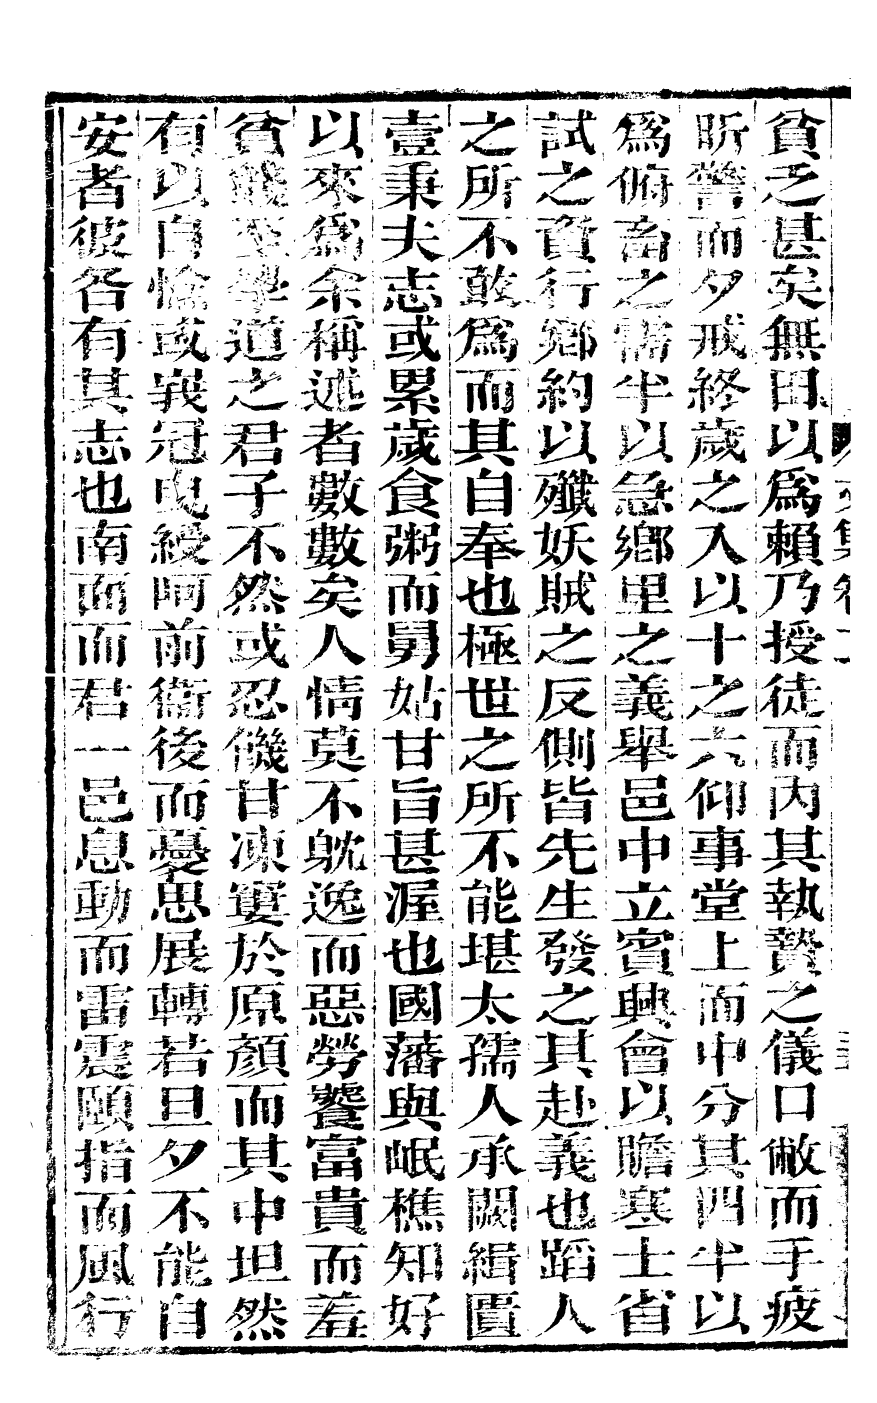 貧乏甚矣無田以爲賴乃授徒而內其執贄之儀口敝而手疲
昕警而夕戒終歲之入以十之六仰事堂上而中分其四半以
爲俯畜之需半以急鄉里之義舉邑中立賓興會以贍寒士省
試之資行鄉約以殲妖賊之反側皆先生發之其赴義也蹈人
之所不敢爲而其自奉也極世之所不能堪太孺人承闕緝匱
壹秉夫志或累歲食粥而舅姑甘旨甚渥也國藩與岷樵知好
以來爲余稱述者數數矣人情莫不躭逸而惡勞饕富貴而羞
貧賤至學道之君子不然或忍饑甘凍窶於原顏而其中坦然
有以自愉或峩冠曳綬呵前衞後而憂思展轉若旦夕不能自
安者彼各有其志也南面而君一邑息動而雷震頤指而風行